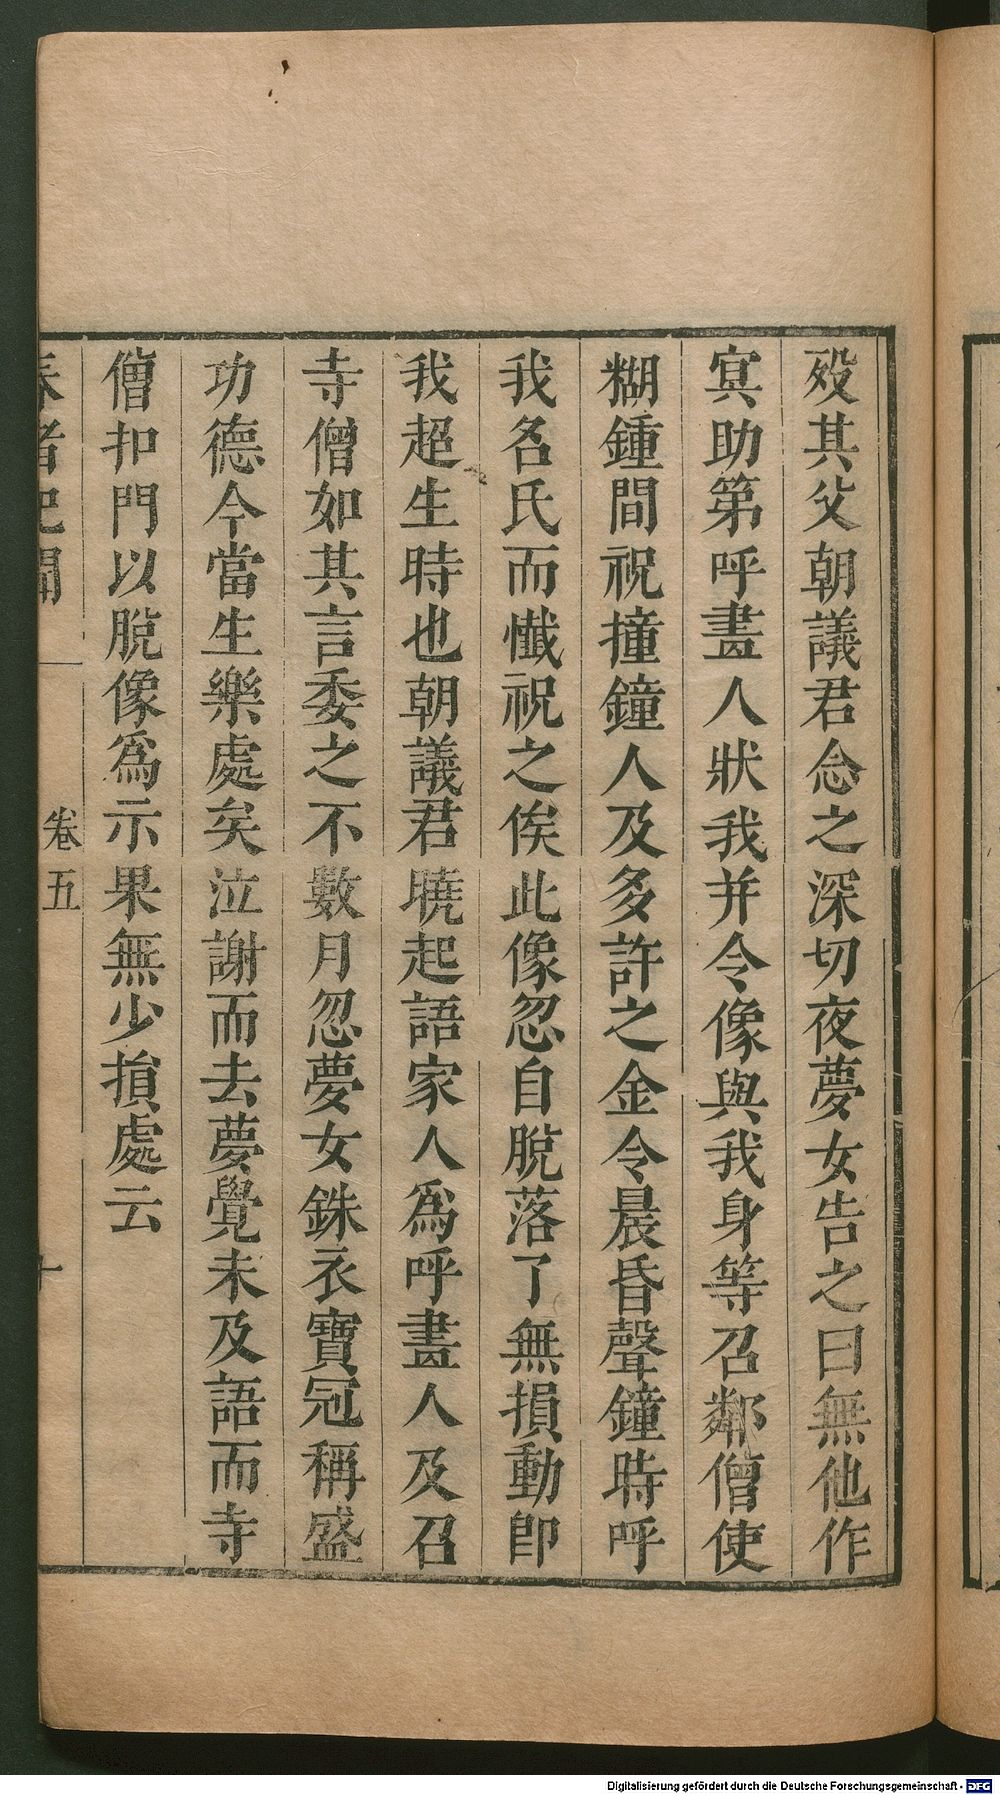 歿其父朝議君念之深切夜夢女告之曰無他作
冥助第呼畫人狀我并令像與我身等召鄰僧使
糊鍾間祝撞鐘人及多許之金令晨昏聲鐘時呼
我名氏而懺祝之俟此像忽自脫落了無損動卽
我超生時也朝議君曉起語家人爲呼畫人及召
寺僧如其言委之不數月忽夢女銖衣寶冠稱盛
功德今當生樂處矣泣謝而去夢覺未及語而寺
僧扣門以脫像爲示果無少損處云
春渚紀聞 卷五 十
Digitalisierung gefördert durch die Deutsche Forschungsgemeinschaft - DFG